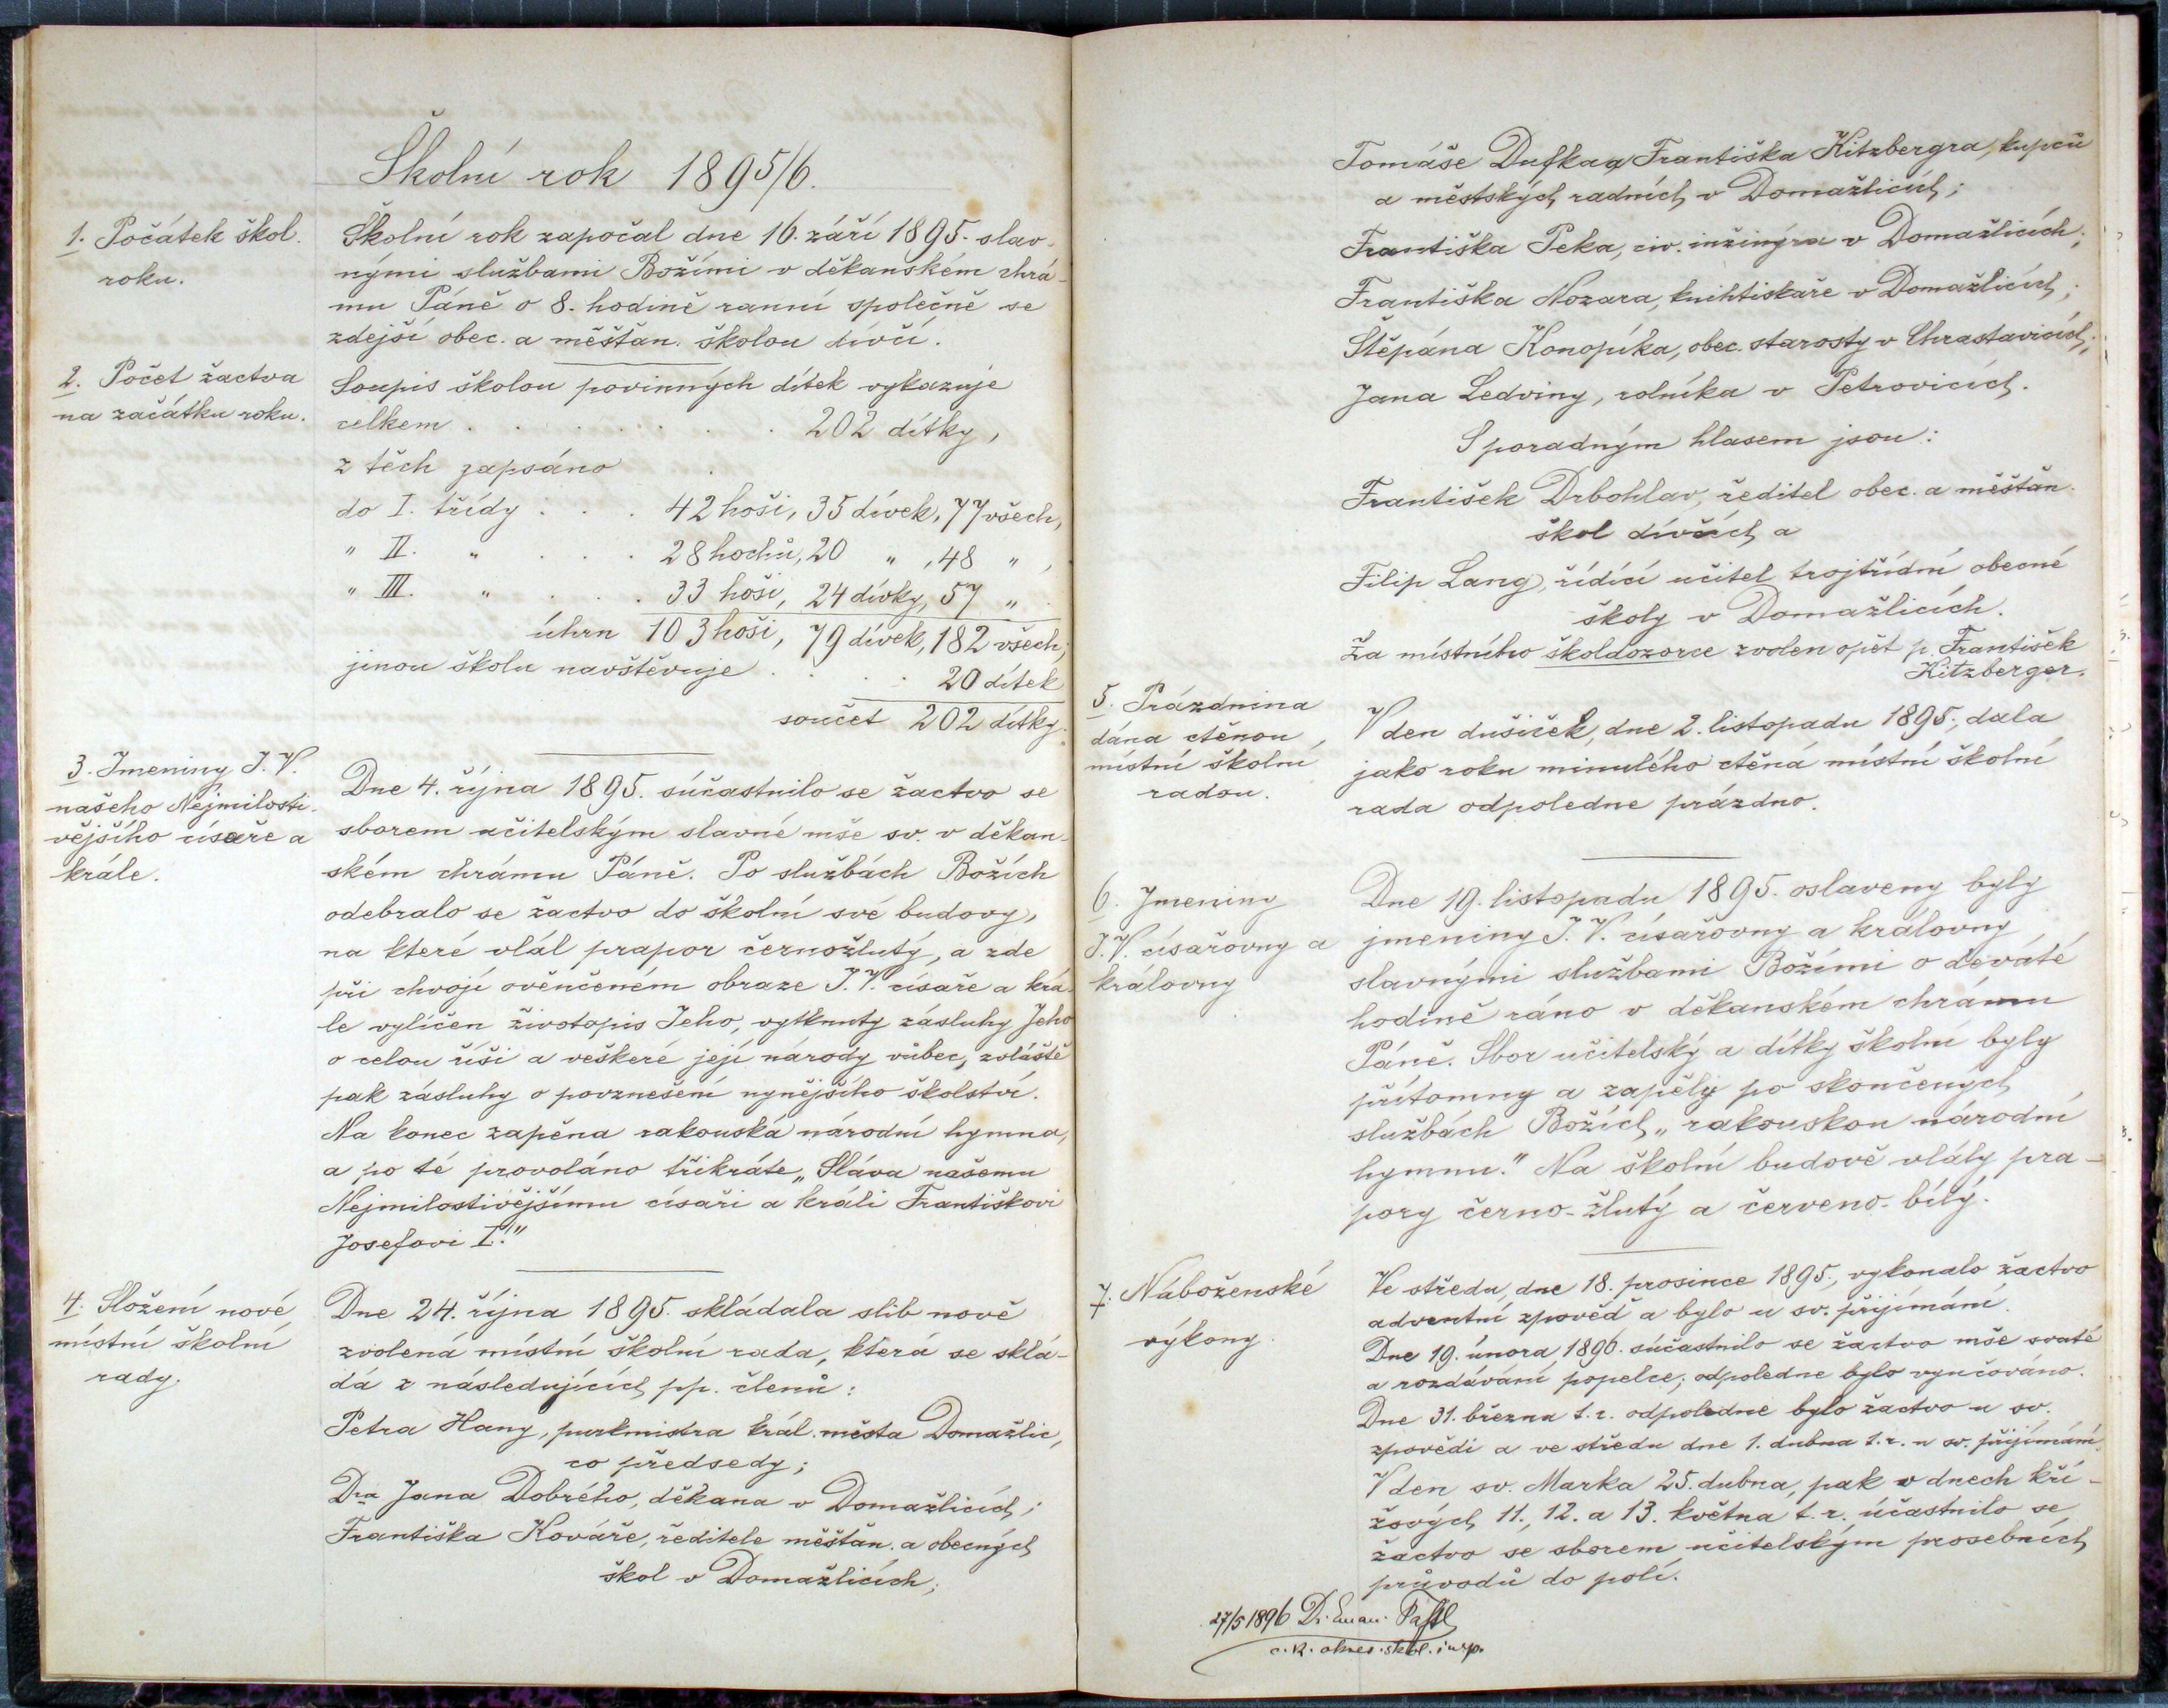 Školní rok 1895/6.
1. Počátek škol.
roku.
Školní rok započal dne 16. září 1895. slav-
nými službami Božími v děkanském chrá-
mu Páně o 8. hodině ranní společně se
zdejší obec. a měšťan. školou dívčí.
2. Počet žactva
na začátku roku.
Soupis školou povinných dítek vykazuje
celkem . . . . . . . 202 dítky,
z těch zapsáno
do I. třídy . . . 42 hoši, 35 dívek, 77 všech,
" II. " . . . 28 hochů, 20 " , 48 " ,
" III. " . . . 33 hoši, 24 dívky, 57 " .
úhrn 103 hoši, 79 dívek, 182 všech;
jinou školu navštěvuje . . . . 20 dítek
součet 202 dítky.
3. Jmeniny J. V.
našeho Nejmilosti-
vějšího císaře a
krále.
Dne 4. října 1895. súčastnilo se žactvo se
sborem učitelským slavné mše sv. v děkan-
ském chrámu Páně. Po službách Božích
odebralo se žactvo do školní své budovy,
na které vlál prapor černožlutý, a zde
při chvojí ověnčeném obraze J. V. císaře a krá-
le vylíčen životopis Jeho, vytknuty zásluhy Jeho
o celou říši a veškeré její národy vůbec, zvláště
pak zásluhy o povznešení nynějšího školství.
Na konec zapěna rakouská národní hymna,
a po té provoláno třikráte „Sláva našemu
Nejmilostivějšímu císaři a králi Františkovi
Josefovi I."
4. Složení nové
místní školní
rady.
Dne 24. října 1895. skládala slib nově
zvolená místní školní rada, která se sklá-
dá z následujících pp. členů:
Petra Hany, purkmistra král. města Domažlic,
co předsedy;
Dra Jana Dobrého, děkana v Domažlicích;
Františka Kováře, ředitele měšťan. a obecných
škol v Domažlicích;
Tomáše Dufka a Františka Kitzbergra, kupců
a městských radních v Domažlicích;
Františka Peka, civ. inžinýra v Domažlicích;
Františka Nozara, knihtiskaře v Domažlicích;
Štěpána Konopíka, obec. starosty v Chrastavicích;
Jana Ledviny, rolníka v Petrovicích.
S poradným hlasem jsou:
František Drbohlav, ředitel obec. a měšťan.
škol dívčích a
Filip Lang, řídící učitel trojtřídní obecné
školy v Domažlicích.
Za místního školdozorce zvolen opět p. František
Kitzberger.
5. Prázdnina
dána ctěnou
místní školní
radou.
V den dušiček, dne 2. listopadu 1895., dala
jako roku minulého ctěná místní školní
rada odpoledne prázdno.
6. Jmeniny
J. V. císařovny a
královny
Dne 19. listopadu 1895. oslaveny byly
jmeniny J. V. císařovny a královny
slavnými službami Božími o deváté
hodině ráno v děkanském chrámu
Páně. Sbor učitelský a dítky školní byly
přítomny a zapěly po skončených
službách Božích „rakouskou národní
hymnu." Na školní budově vlály pra-
pory černo-žlutý a červeno-bílý.
7. Náboženské
výkony.
Ve středu, dne 18. prosince 1895., vykonalo žactvo
adventní zpověď a bylo u sv. přijímání.
Dne 19. února 1896. súčastnilo se žactvo mše svaté
a rozdávání popelce; odpoledne bylo vyučováno.
Dne 31. března t. r. odpoledne bylo žactvo u sv.
zpovědi a ve středu dne 1. dubna t. r. u sv. přijímání.
V den sv. Marka 25. dubna, pak v dnech kří-
žových 11., 12. a 13. května t. r. účastnilo se
žactvo se sborem učitelským prosebních
průvodů do polí.
27/5 1896 Dr. Eman.
c. k. okres. škol. insp.